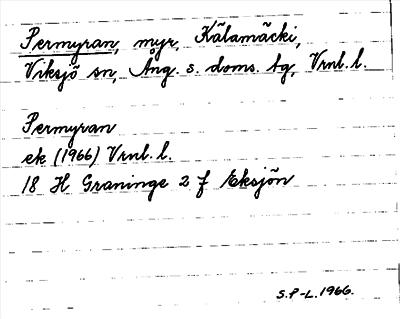 Permyran, myr, Kälamäcki,
Viksjö sn, Ång. s. doms. tg, Vrnl. l.
Permyran
ek (1966) Vrnl. l.
18 H Graninge 2 f Eksjön
S.P-L. 1966.